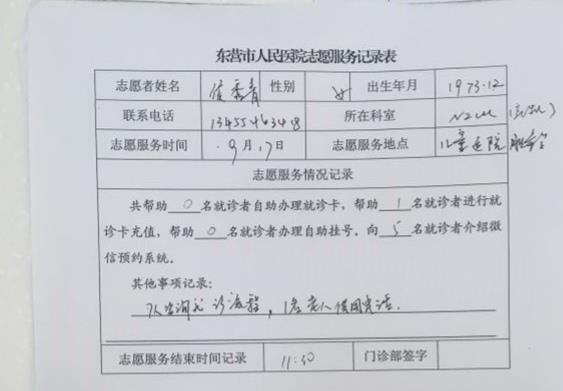 东营市人民医院志愿服务记录表
志愿者姓名 性别 女 出生年月 1973.12
联系电话 13455463498 所在科室
志愿服务时间 9月17日 志愿服务地点 儿童医院
志愿服务情况记录
共帮助 0 名就诊者自助办理就诊卡，帮助 1 名就诊者进行就
诊卡充值，帮助 0 名就诊者办理自助挂号。向 5 名就诊者介绍微
信预约系统。
其他事项记录：
7人咨询 诊流程，1名老人借用电话.
志愿服务结束时间记录 11:30 门诊部签字